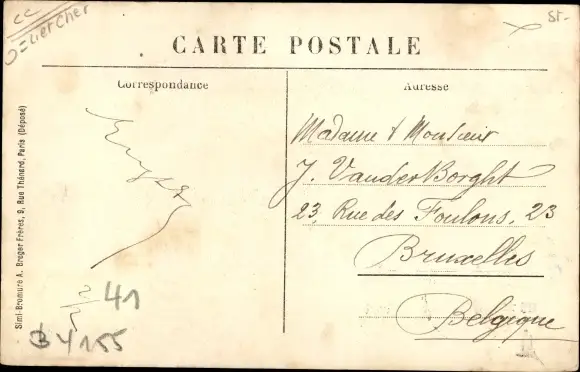 Loir et Cher
St-
CARTE POSTALE
Correspondance
Adresse
Madame & Monsieur
J. VanderBorght
23, Rue des Foulons, 23
Bruxelles
Belgique
41
B 4155
Simi-Bromure A. Breger Frères, 9, Rue Thénard, Paris (Déposé)